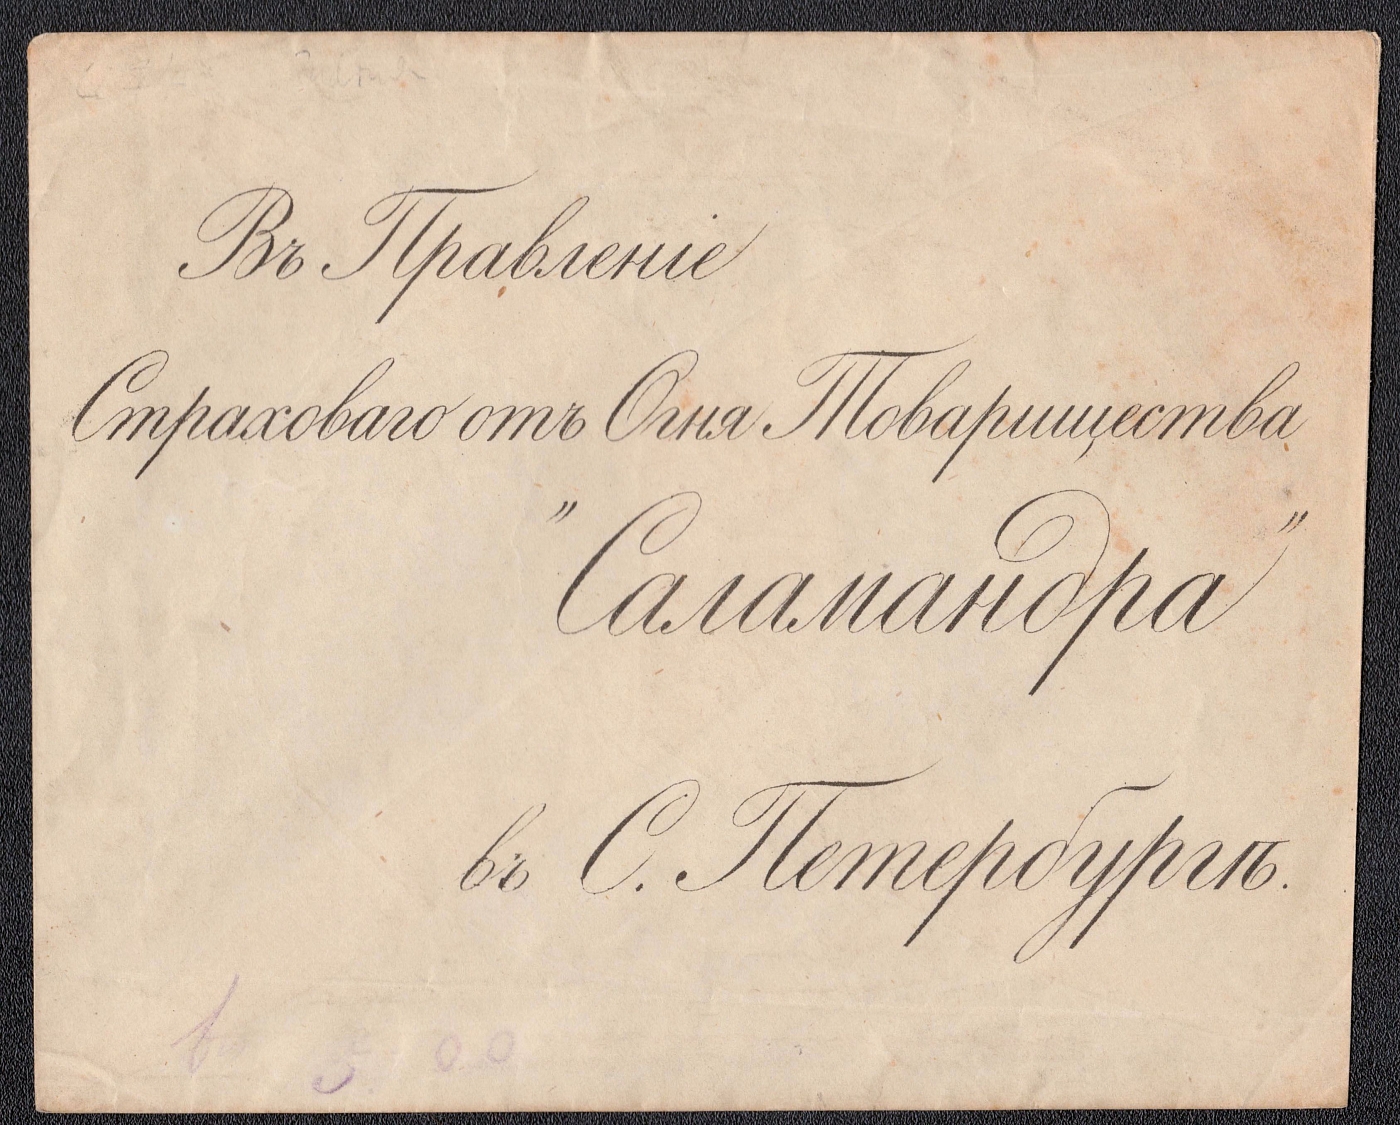 Въ Правленіе
Страховаго отъ Огня Товарищества
"Саламандра"
въ С. Петербургѣ.